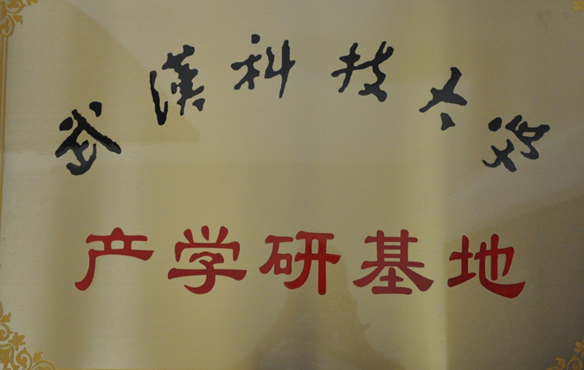 武漢科技大学
产学研基地